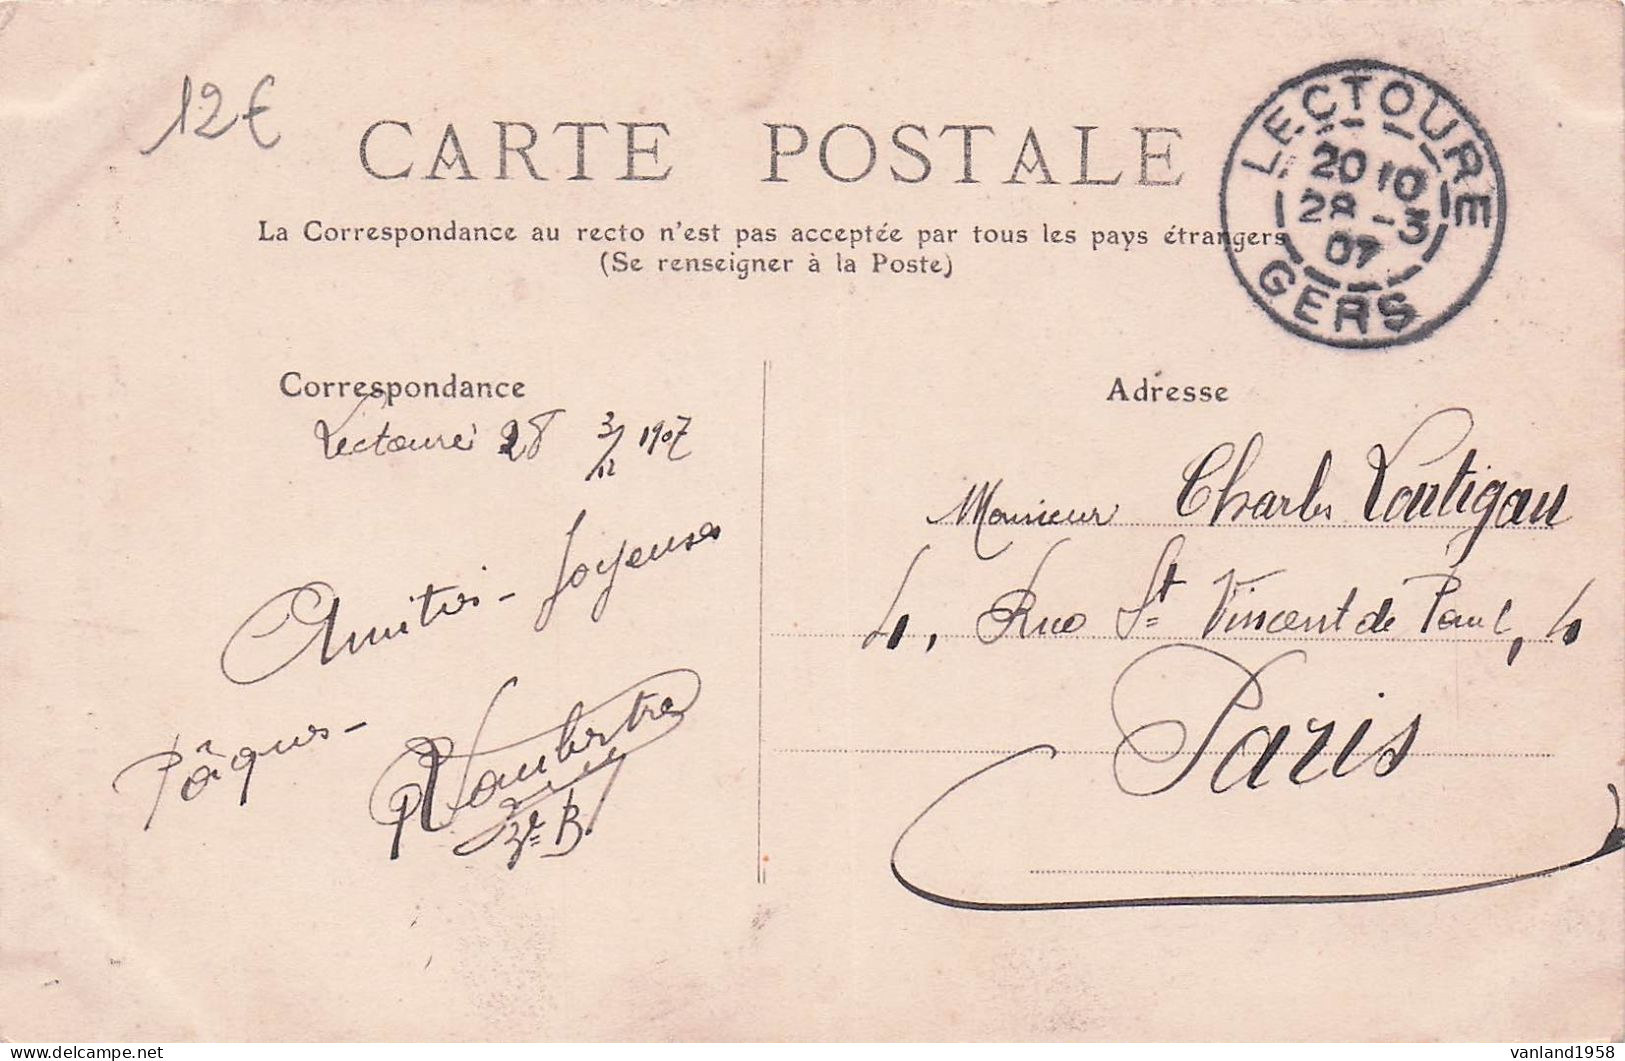 12€
CARTE POSTALE
La Correspondance au recto n'est pas acceptée par tous les pays étrangers
(Se renseigner à la Poste)
LECTOURE
20 10
28 - 3
07
GERS
Correspondance
Lectoure 28 3/12 1907
Amitiés - Joyeuses
Pâques -
Adresse
Monsieur Charles
4, Rue St Vincent de Paul, 4
Paris
vanland1958